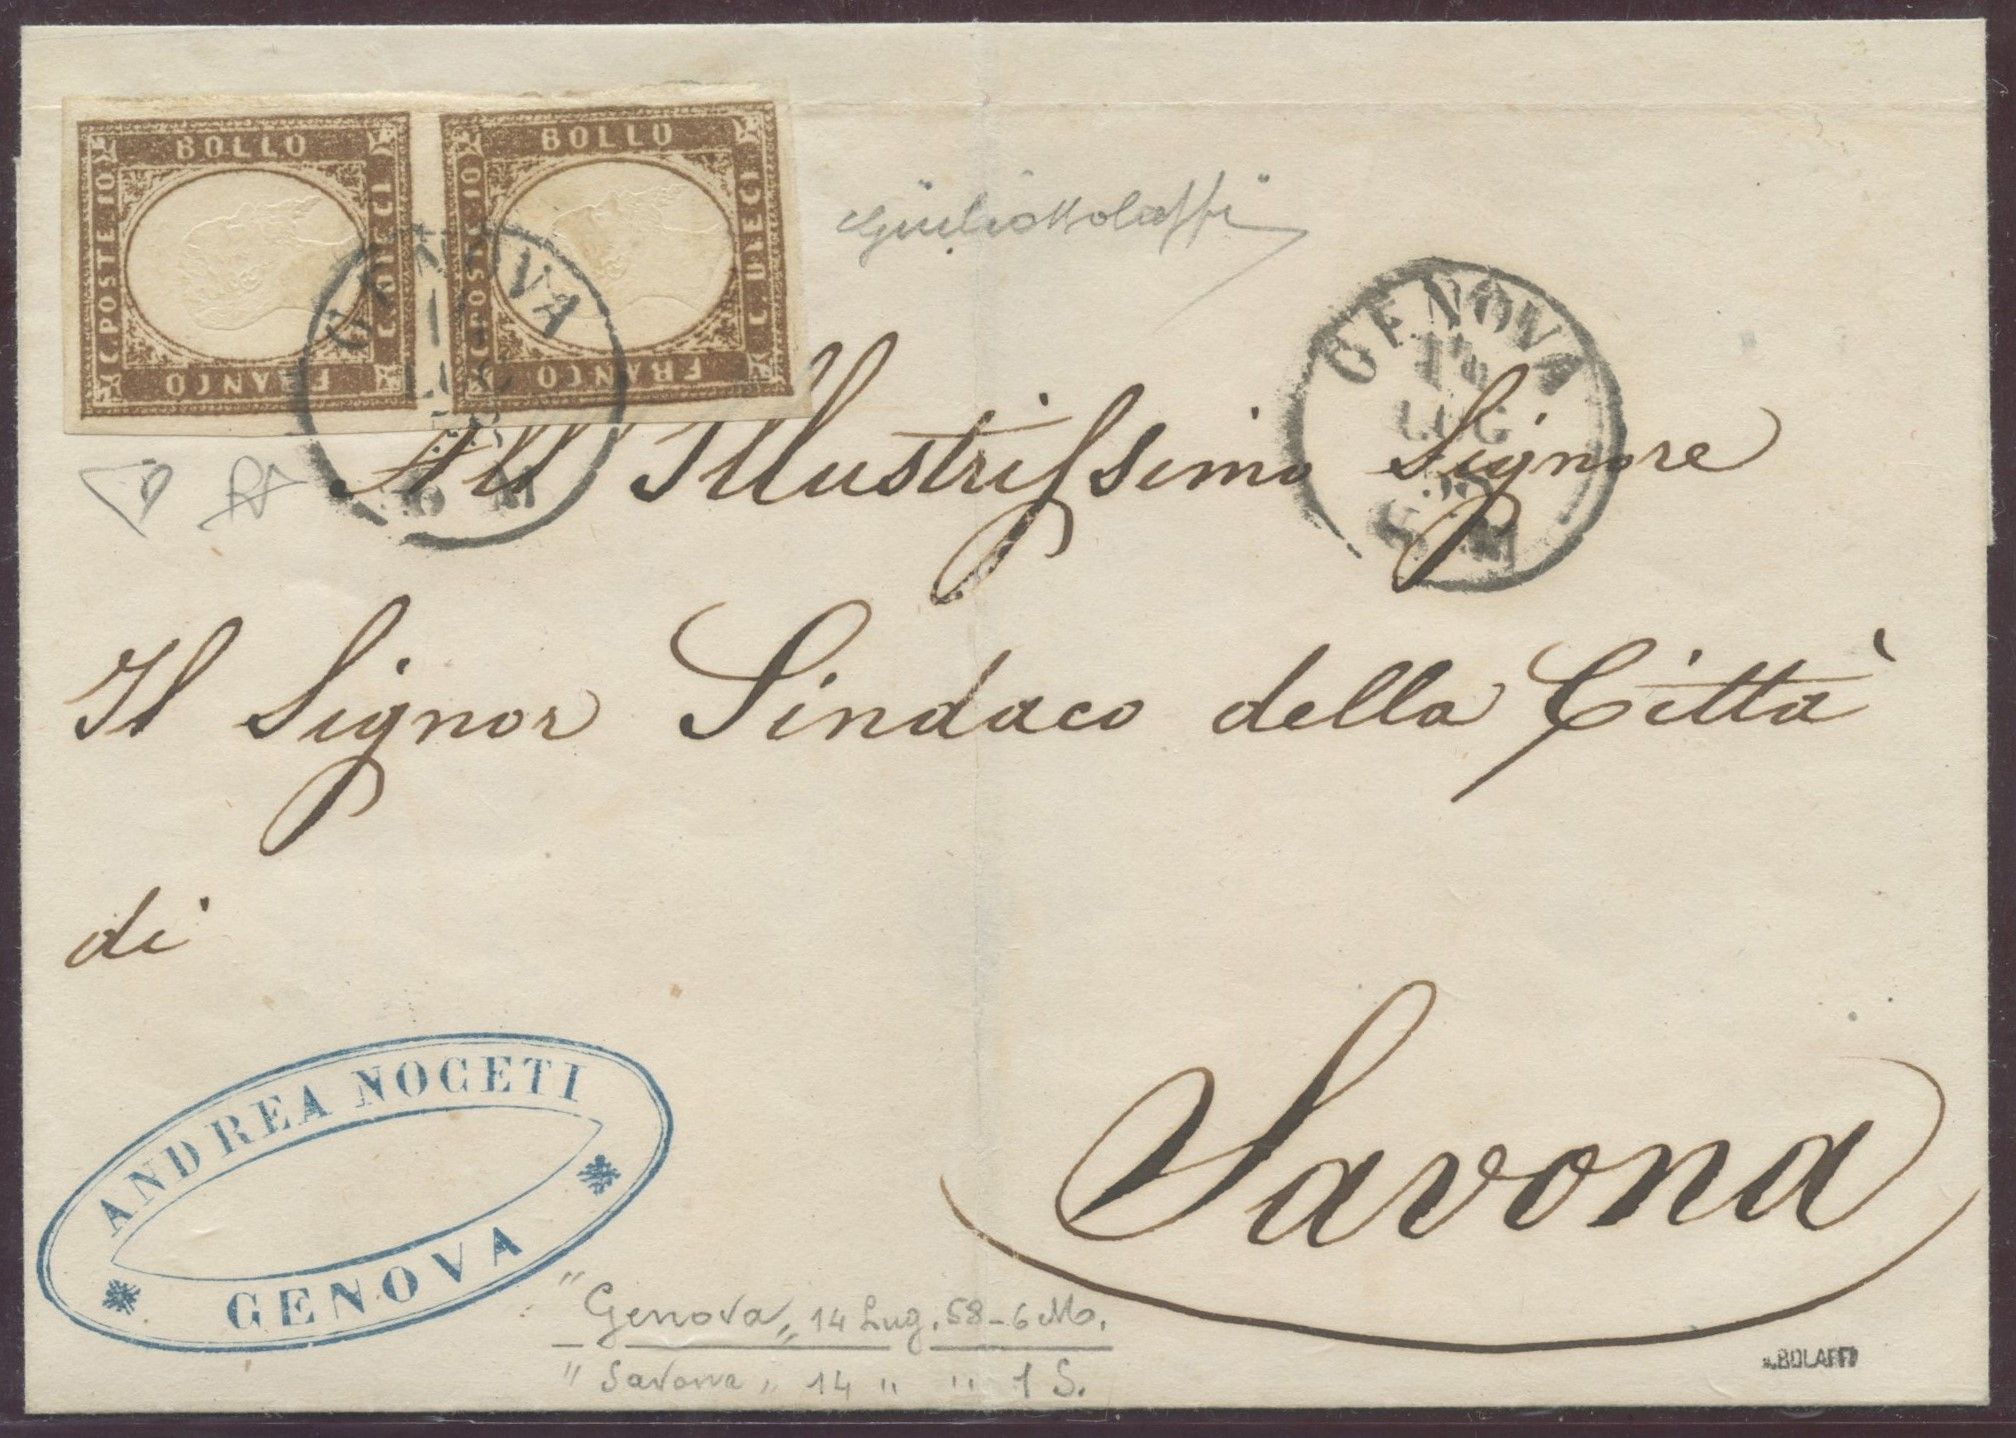 BOLLO
C. POSTE 10
C. DIECI
FRANCO
BOLLO
C. POSTE 10
C. DIECI
FRANCO
GENOVA
14
LUG
58
6 M
GENOVA
14
LUG
58
All' Illustrissimo Signore
Il Signor Sindaco della Città
di
Savona
ANDREA NOCETI
GENOVA
"Genova" 14 Lug. 58 - 6 M.
"Savona" 14 " " 1 S.
BOLAFFI